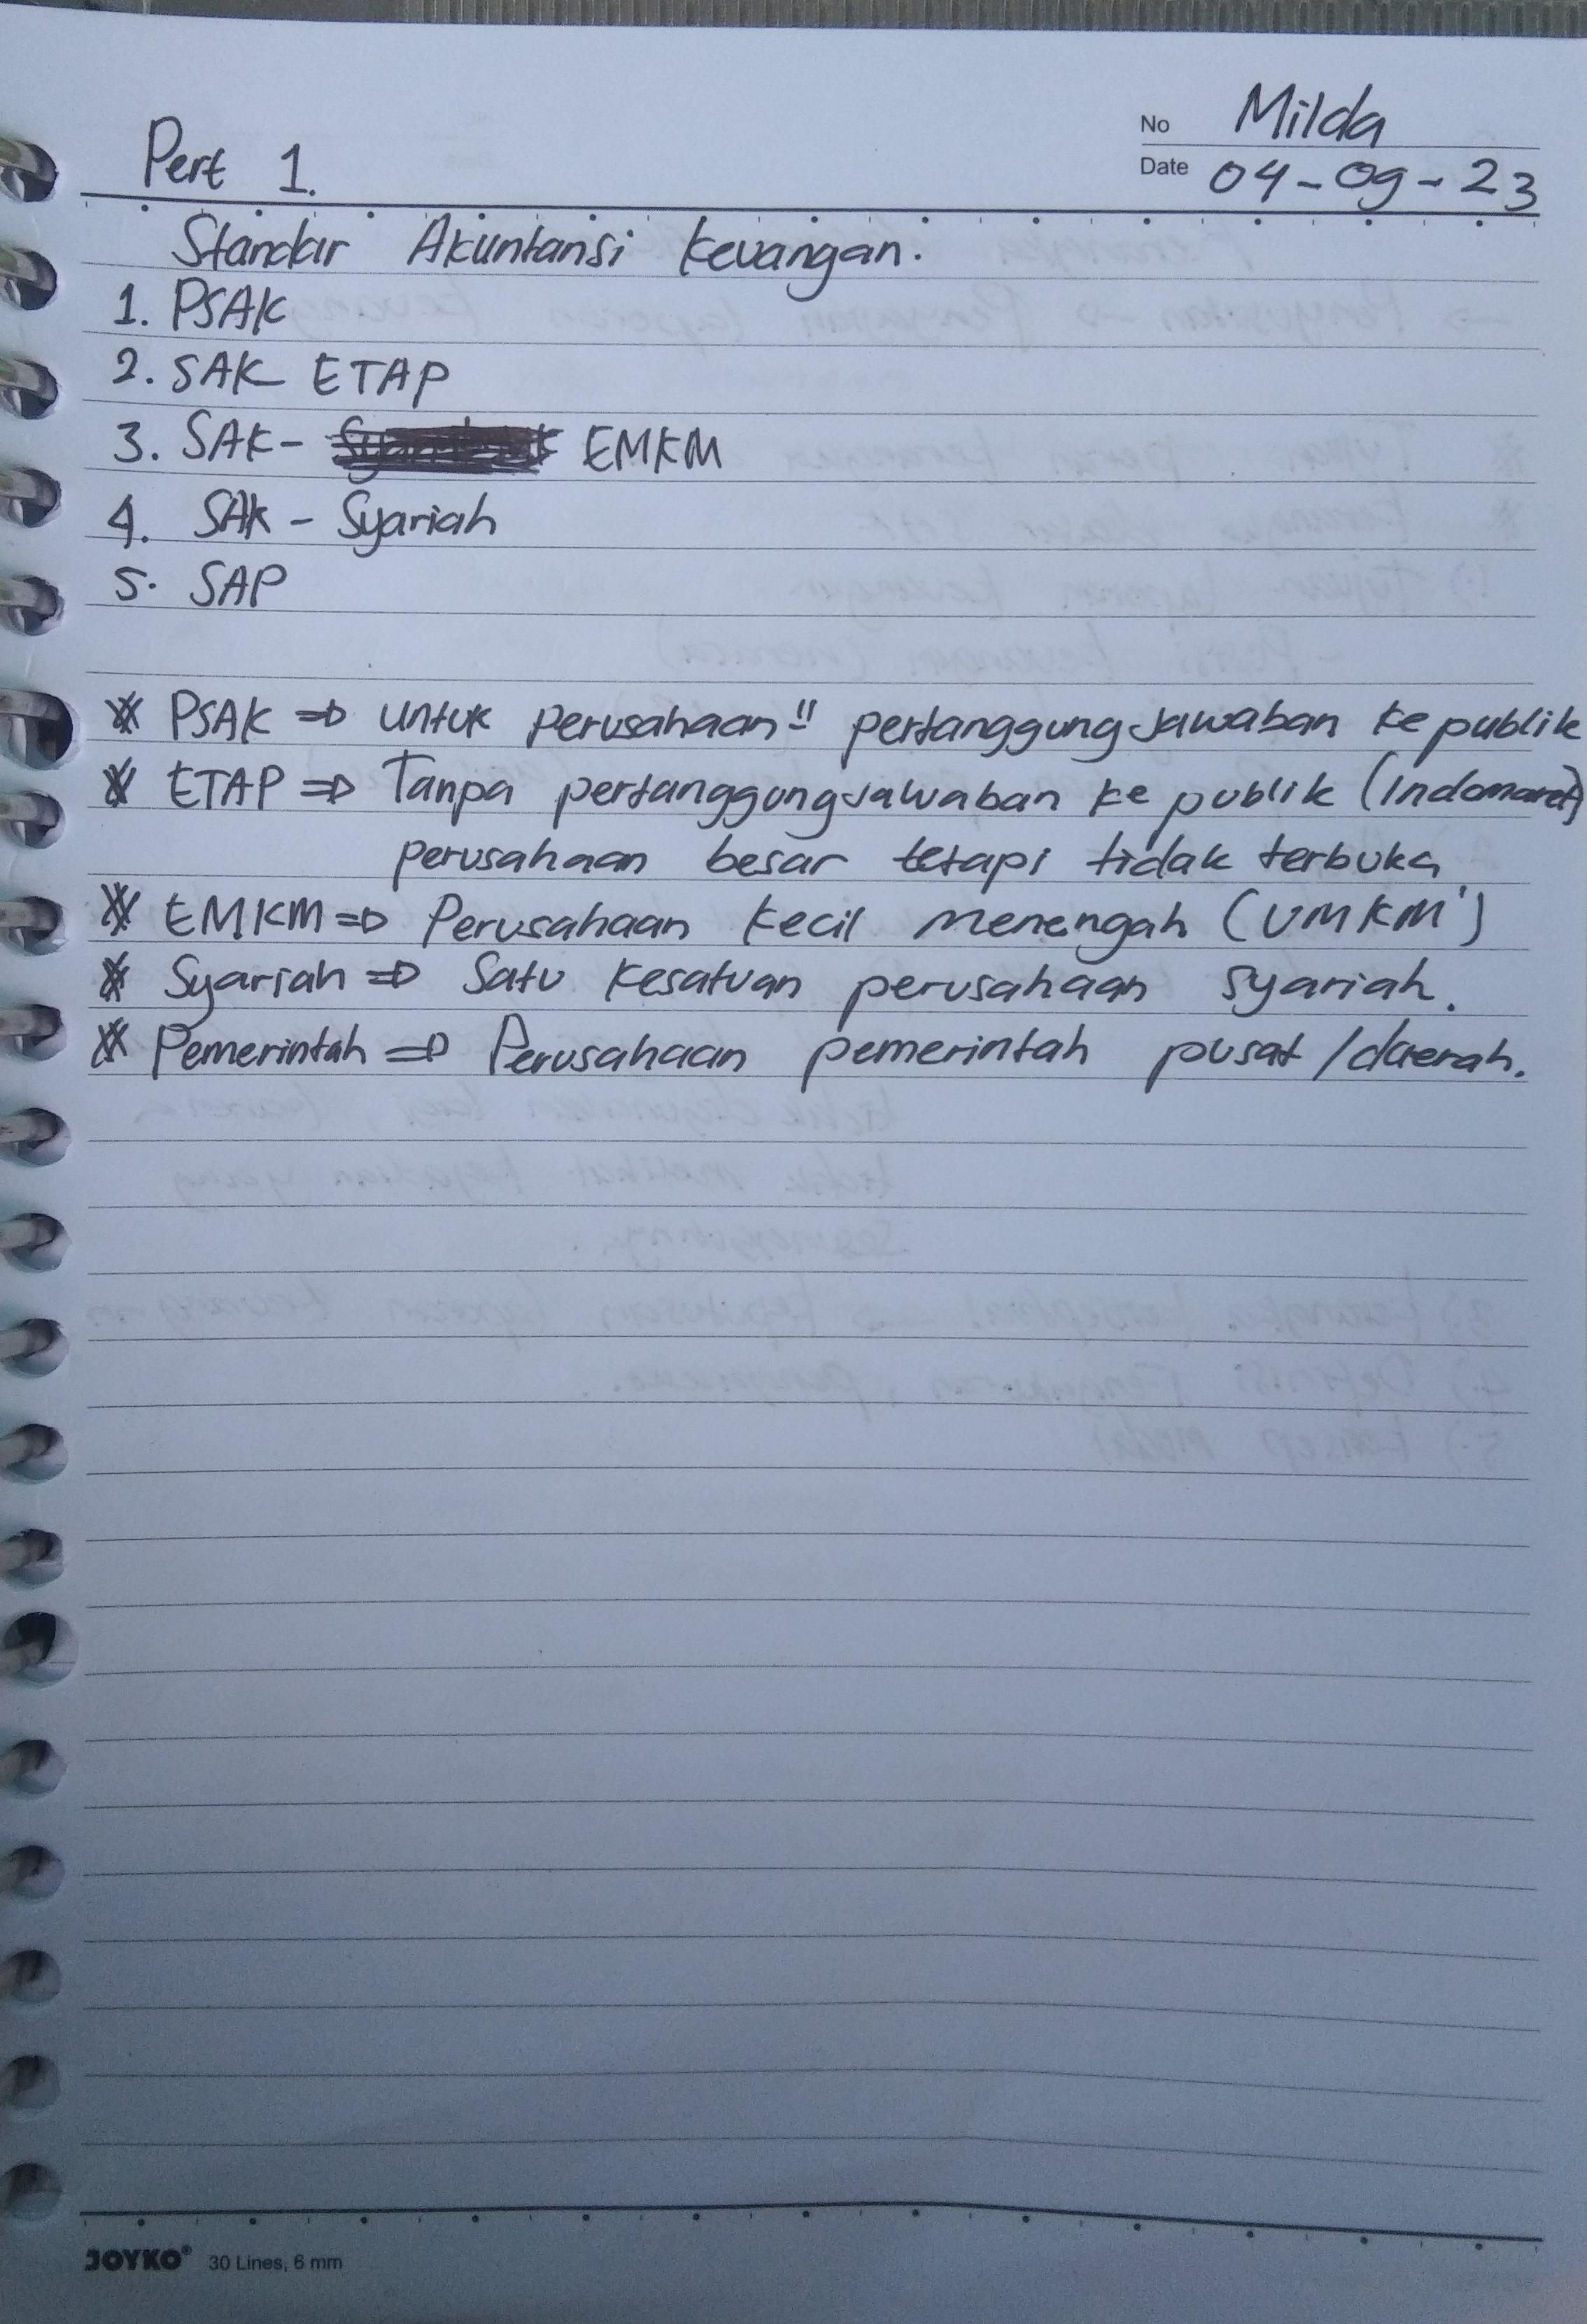 No Milda
Pert 1.
Date 04-09-23
Standar Akuntansi keuangan.
1. PSAK
2. SAK ETAP
3. SAK- EMKM
4. SAK - Syariah
5. SAP
* PSAK => untuk perusahaan" pertanggung jawaban ke publik
* ETAP => Tanpa pertanggungjawaban ke publik (Indomaret)
perusahaan besar tetapi tidak terbuka
* EMKM => Perusahaan kecil menengah (UMKM')
* Syariah => Satu kesatuan perusahaan syariah.
* Pemerintah => Perusahaan pemerintah pusat /daerah.
JOYKO® 30 Lines, 6 mm